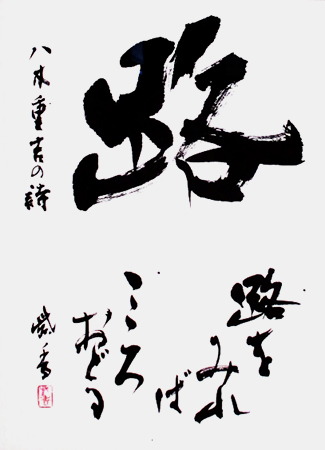 路
八木重吉の詩
路を
みれ
ば
こころ
おどる